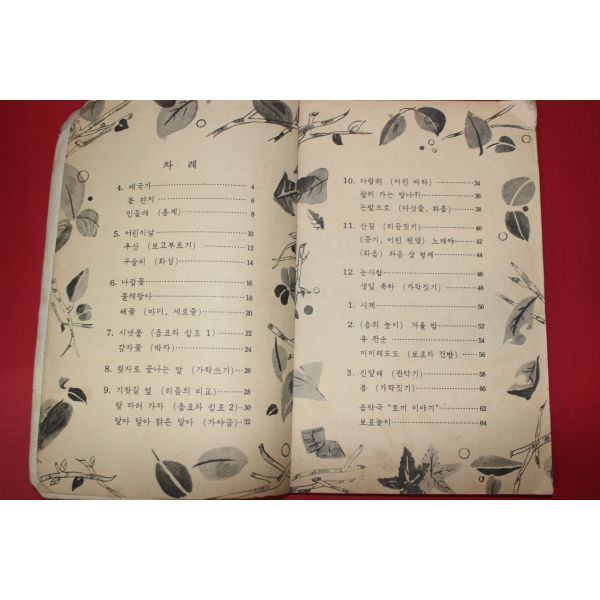 차 례
4. 애국가 4
봄 편지 6
민들레 (음계) 8
5. 어린이날 10
우산 (보고부르기) 12
구슬비 (화성) 14
6. 나팔꽃 16
물레방아 18
배꽃 (마미, 세로줄) 20
7. 시냇물 (음표와 쉼표 1) 22
감자꽃 (박자) 24
8. 릿자로 끝나는 말 (가락쓰기) 26
9. 기찻길 옆 (리듬의 비교) 28
달 따러 가자 (음표와 쉼표 2) 30
달아 달아 밝은 달아 (가야금) 32
10. 다람쥐 (어린 바하) 34
팔러 가는 당나귀 36
논밭으로 (다섯줄, 화음) 38
11. 산길 (리듬짓기) 40
(듣기, 어린 헨델) 노래야 42
(화음) 화음 삼 형제 44
12. 눈사람 46
생일 축하 (가락짓기) 48
1. 시계 50
2. (음의 놀이) 겨울 밤 52
유 관순 54
미미레도도 (보표와 건반) 56
3. 진달래 (관악기) 58
봄 (가락짓기) 60
음악극 "토끼 이야기" 62
보표놀이 64